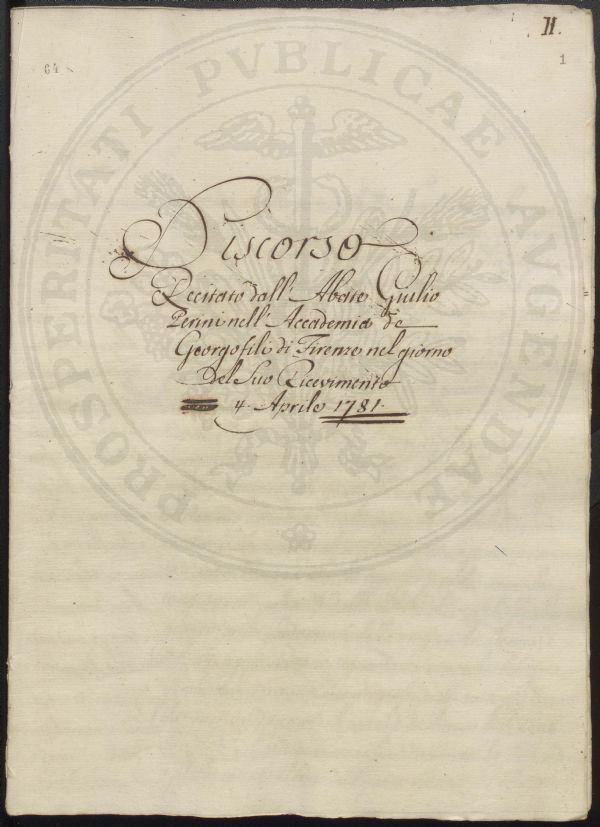 11.
64
1
PROSPERITATI PVBLICAE AVGENDAE
Discorso
Recitato dall' Abate Giulio
Perini nell' Accademia de
Georgofili di Firenze nel giorno
del Suo Ricevimento
4. Aprile 1781.